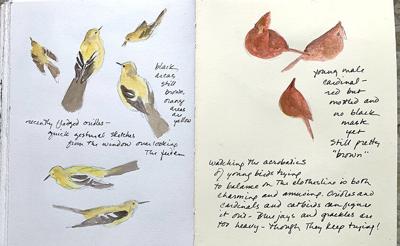 black
areas
still
brown,
orange
areas
are
yellow
recently fledged orioles -
quick gestural sketches
from the window overlooking
The feeders
young male
cardinal -
red but
mottled and
no black
mask
yet
Still pretty
"brown"
watching the acrobatics
of young birds trying
to balance on the clothesline is both
charming and amusing. Orioles and
cardinals and catbirds can figure
it out - Blue jays and grackles are
too heavy - though They keep trying!